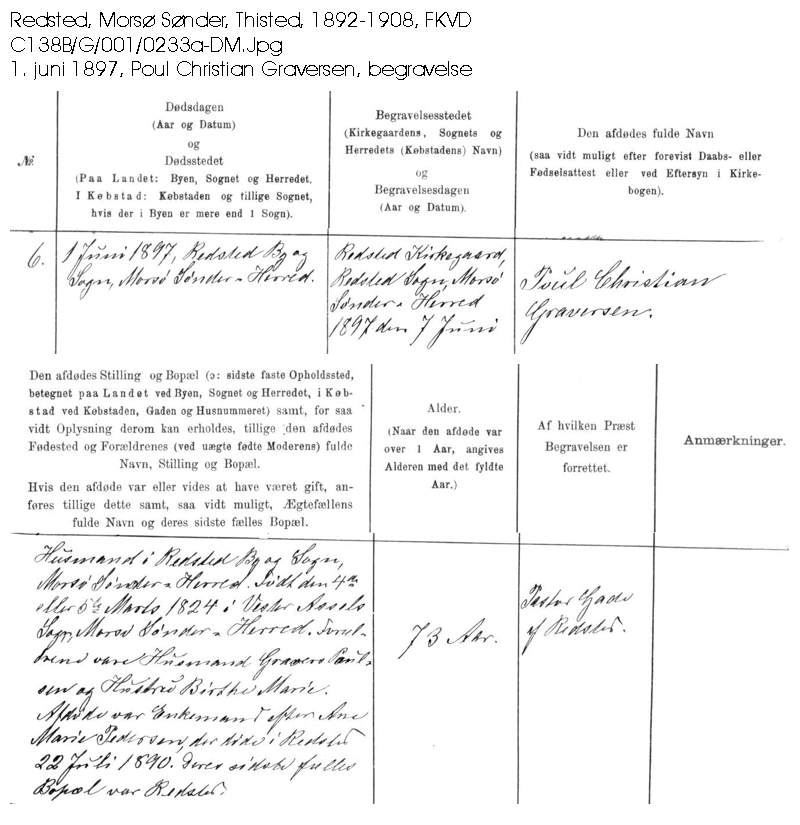 Redsted, Morsø Sønder, Thisted, 1892-1908, FKVD
C138B/G/001/0233a-DM.Jpg
1. juni 1897, Poul Christian Graversen, begravelse
№
Dødsdagen
(Aar og Datum)
og
Dødsstedet
(Paa Landet: Byen, Sognet og Herredet.
I Købstad: Købstaden og tillige Sognet,
hvis der i Byen er mere end 1 Sogn).
Begravelsesstedet
(Kirkegaardens, Sognets og
Herredets (Købstadens) Navn)
og
Begravelsesdagen
(Aar og Datum).
Den afdødes fulde Navn
(saa vidt muligt efter forevist Daabs- eller
Fødselsattest eller ved Eftersyn i Kirke-
bogen).
6.
1 Juni 1897, Redsted By og
Sogn, Morsö Sønder-Herred.
Redsted Kirkegaard,
Redsted Sogn, Morsö
Sønder-Herred
1897 den 7 Juni
Poul Christian
Graversen.
Den afdødes Stilling og Bopæl (ɔ: sidste faste Opholdssted,
betegnet paa Landet ved Byen, Sognet og Herredet, i Køb-
stad ved Købstaden, Gaden og Husnummeret) samt, for saa
vidt Oplysning derom kan erholdes, tillige den afdødes
Fødested og Forældrenes (ved uægte fødte Moderens) fulde
Navn, Stilling og Bopæl.
Hvis den afdøde var eller vides at have været gift, an-
føres tillige dette samt, saa vidt muligt, Ægtefællens
fulde Navn og deres sidste fælles Bopæl.
Alder.
(Naar den afdøde var
over 1 Aar, angives
Alderen med det fyldte
Aar.)
Af hvilken Præst
Begravelsen er
forrettet.
Anmærkninger.
Husmand i Redsted By og Sogn,
Morsö Sønder-Herred. Født den 4de
eller 5te Marts 1824 i Vester Assels
Sogn, Morsö Sønder-Herred. Foræl-
drene vare Husmand Gravers Poul-
sen og Hustru Birthe Marie.
Afdøde var Enkemand efter Ane
Marie Pedersen, der døde i Redsted
22 Juli 1890. Deres sidste fælles
Bopæl var Redsted.
73 Aar.
Pastor Gade
af Redsted.